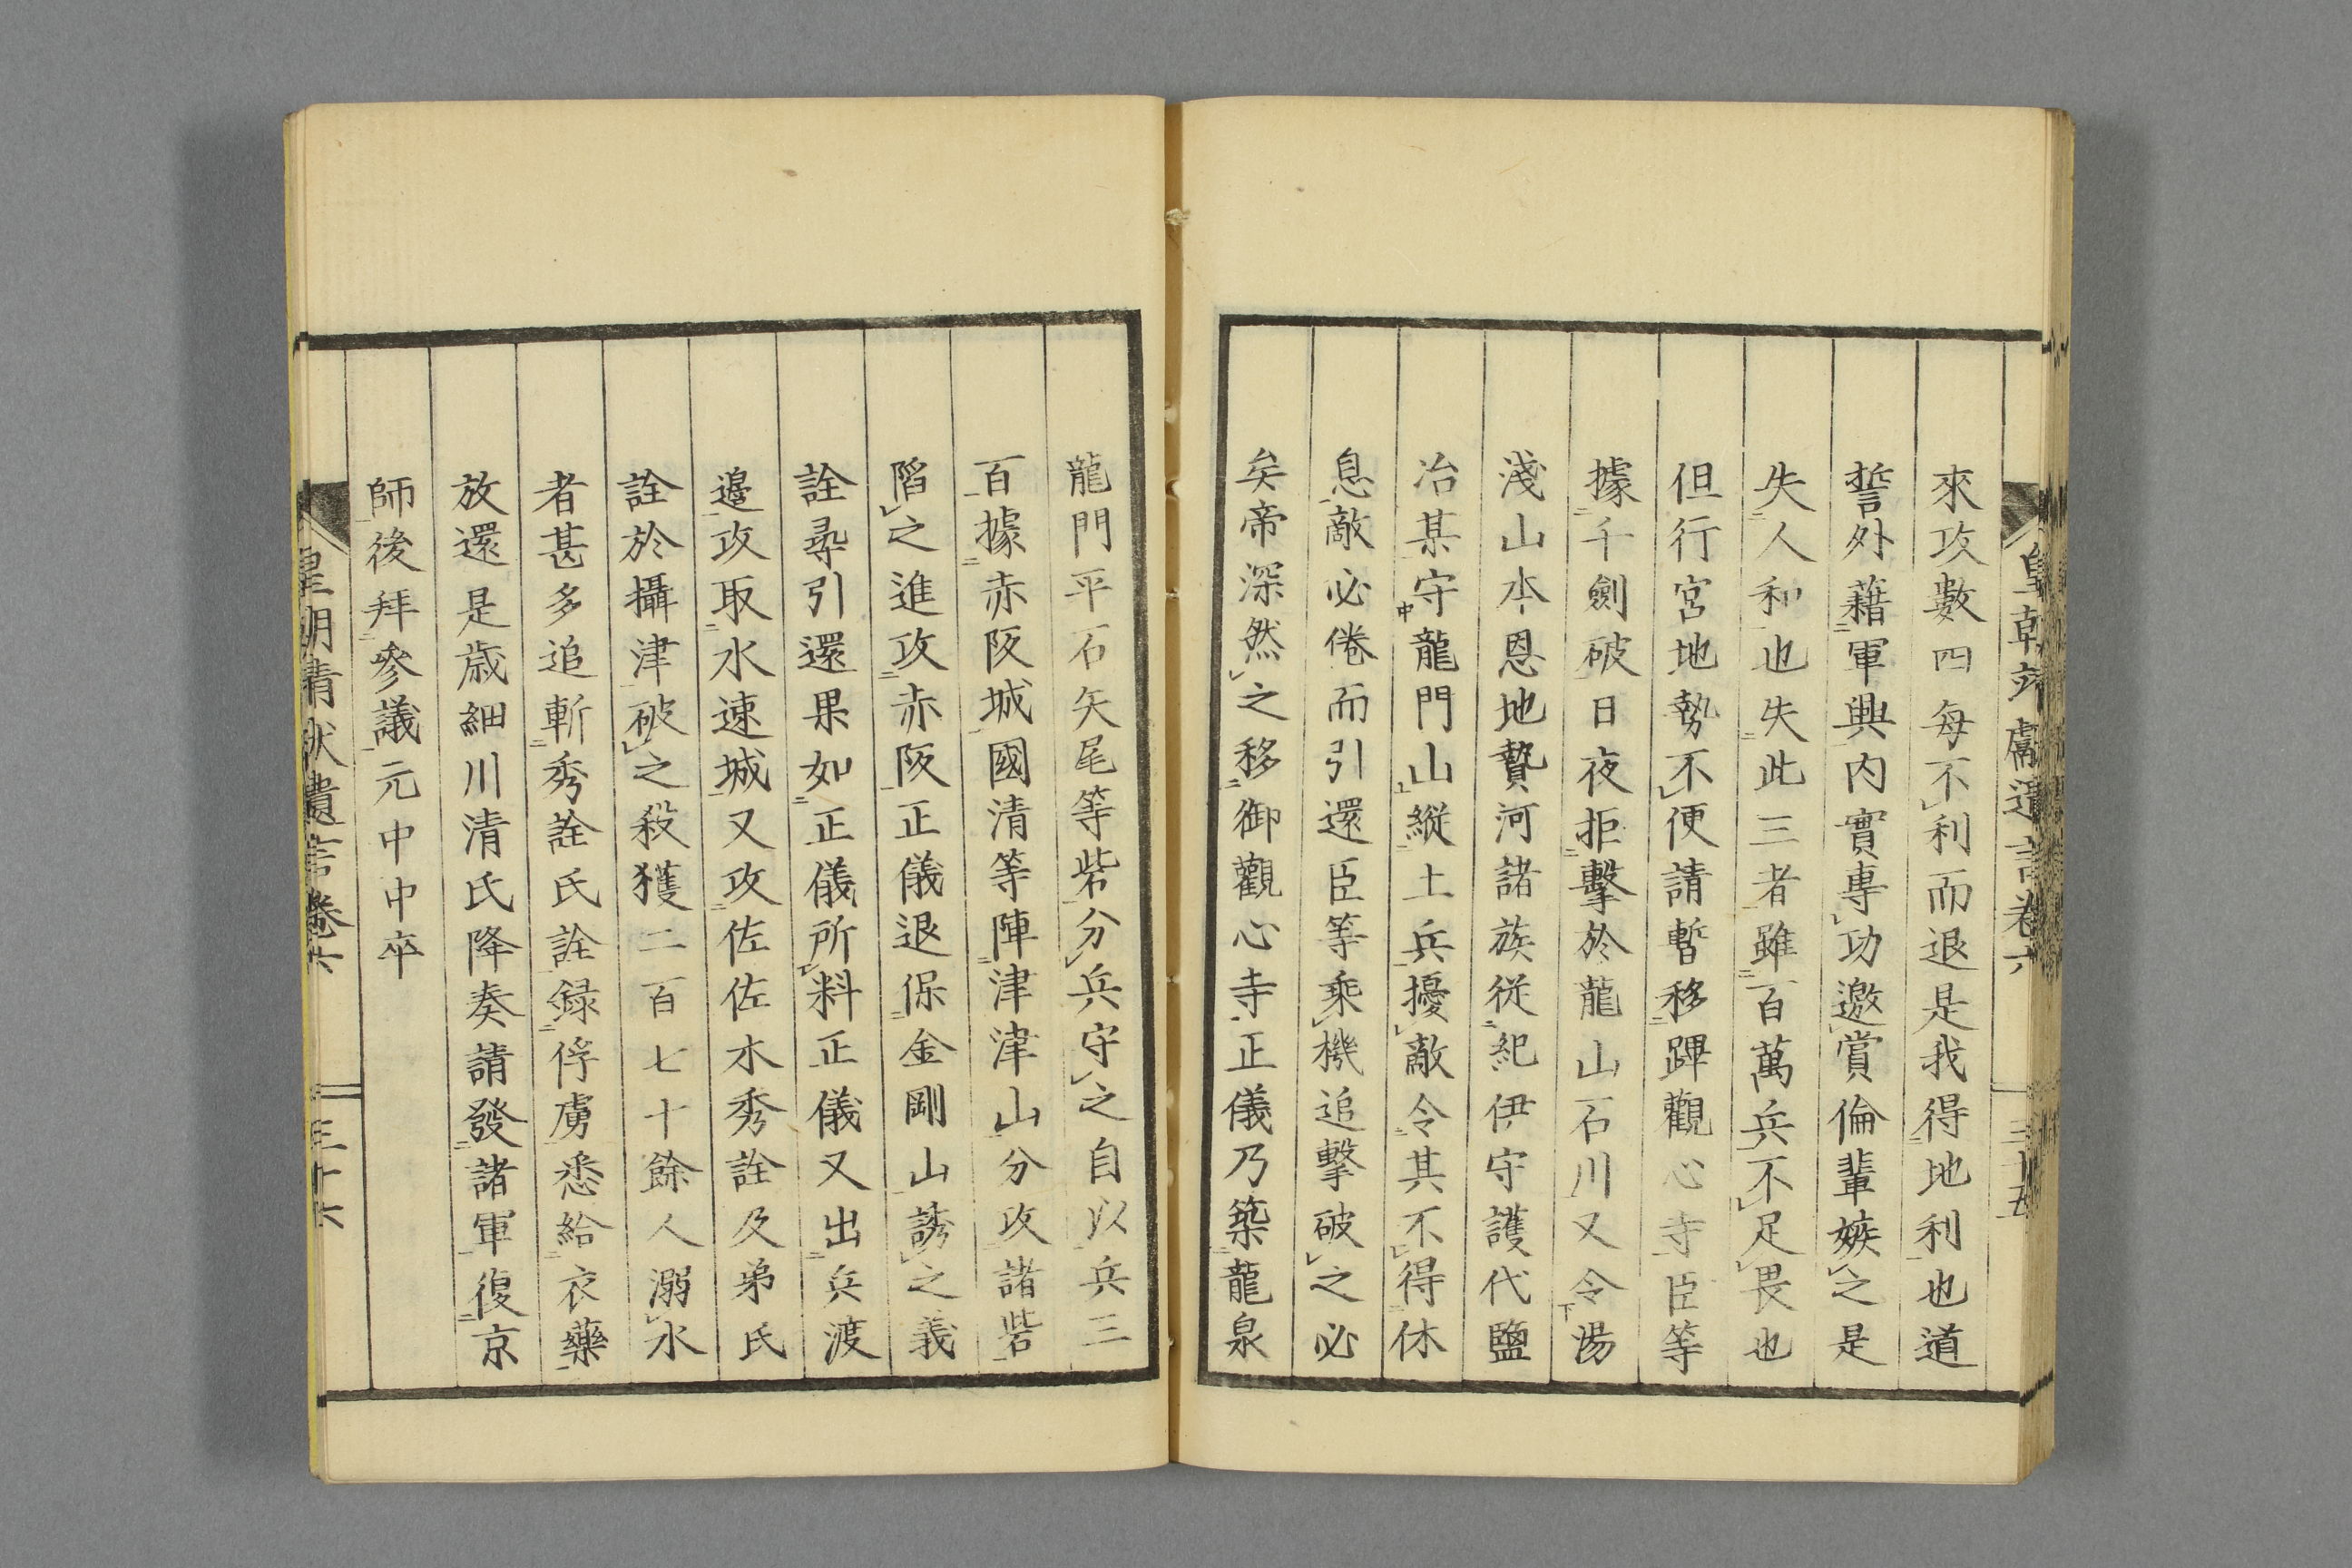 來攻數四每不利而退是我得地利也道
誓外藉軍興內實專功邀賞倫輩嫉之是
失人和也失此三者雖百萬兵不足畏也
但行宮地勢不便請暫移蹕觀心寺臣等
據千劍破日夜拒擊於龍山石川又令湯
淺山本恩地贄河諸族從紀伊守護代鹽
冶某守龍門山縱土兵擾敵令其不得休
息敵必倦而引還臣等乘機追擊破之必
矣帝深然之移御觀心寺正儀乃築龍泉
龍門平石矢尾等砦分兵守之自以兵三
百據赤阪城國清等陣津津山分攻諸砦
陷之進攻赤阪正儀退保金剛山誘之義
詮尋引還果如正儀所料正儀又出兵渡
邉攻取水速城又攻佐佐木秀詮及弟氏
詮於攝津破之殺獲二百七十餘人溺水
者甚多追斬秀詮氏詮録俘虜悉給衣藥
放還是歳細川清氏降奏請發諸軍復京
師後拜參議元中中卒
皇朝靖獻遺言卷六
三十六